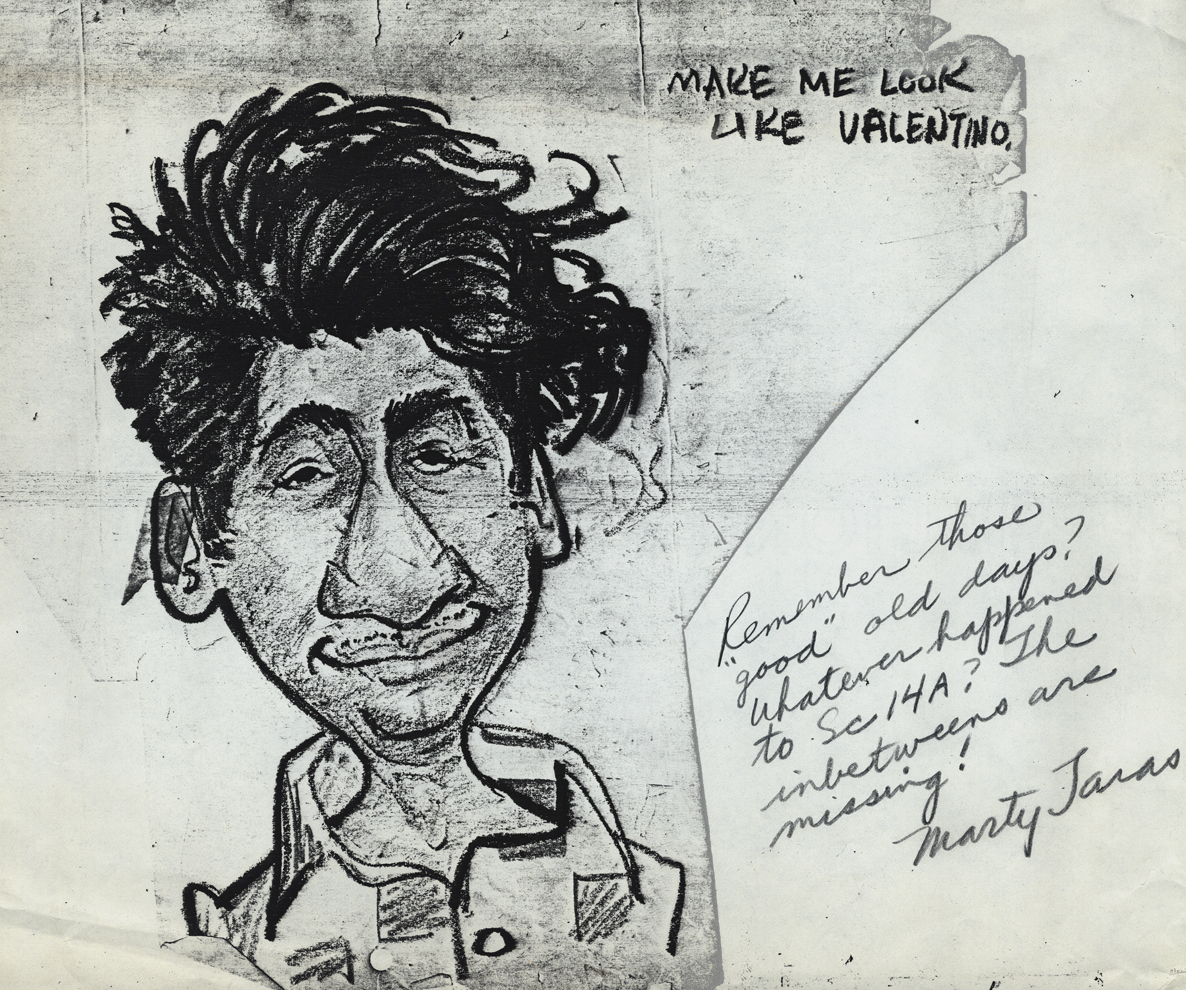 MAKE ME LOOK
LIKE VALENTINO.
Remember those
"good" old days?
Whatever happened
to Sc 14A? The
inbetweens are
missing!
Marty Taras